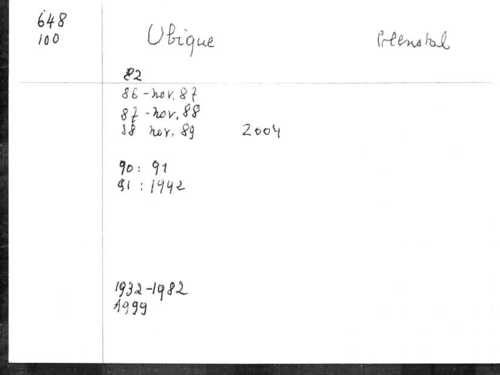 648
100
Ubique
82
86 - nov. 87
87 - nov. 88
88 nov. 89 2004
90 : 91
91 : 1942
1932-1982
1999